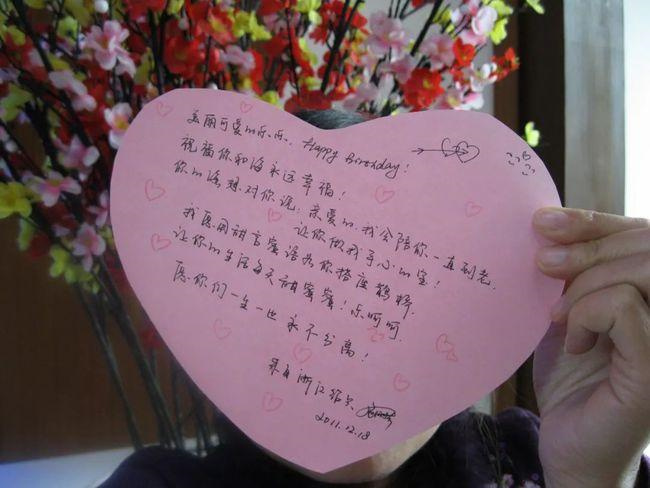 美丽可爱の乐乐, Happy Birthday!
祝福你和海永远幸福!
你の海想对你说: 亲爱の, 我会陪你一直到老.
让你做我手心の宝!
我愿用甜言蜜语为你搭座鹊桥.
让你の生活每天甜蜜蜜! 乐呵呵.
愿你们一生一世永不分离!
来自浙江绍兴
2011.12.18